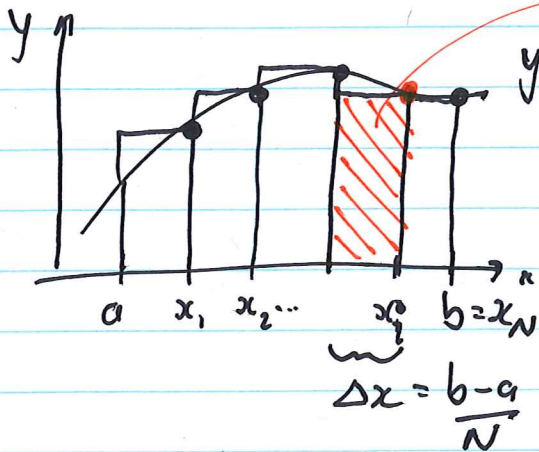 y
y
x
a x₁ x₂... xᵢ b = x_N
Δx = b-a
N